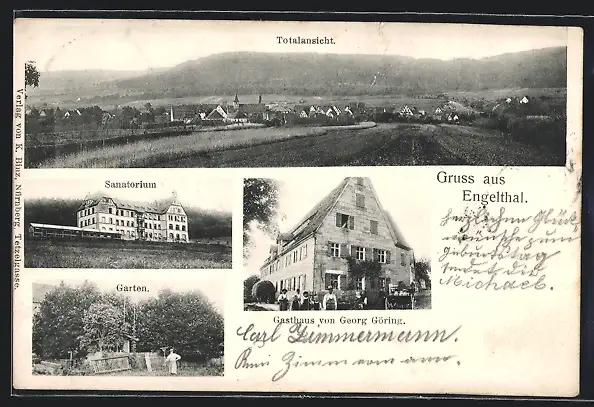 Totalansicht.
Verlag von K. Binz, Nürnberg, Tetzelgasse.
Sanatorium
Gruss aus
Engelthal.
herzlichen Glück
wünsche zum
geburtstag
sendet dir
Michael.
Garten.
Gasthaus von Georg Göring.
Carl Zimmermann.
Zimmermann.